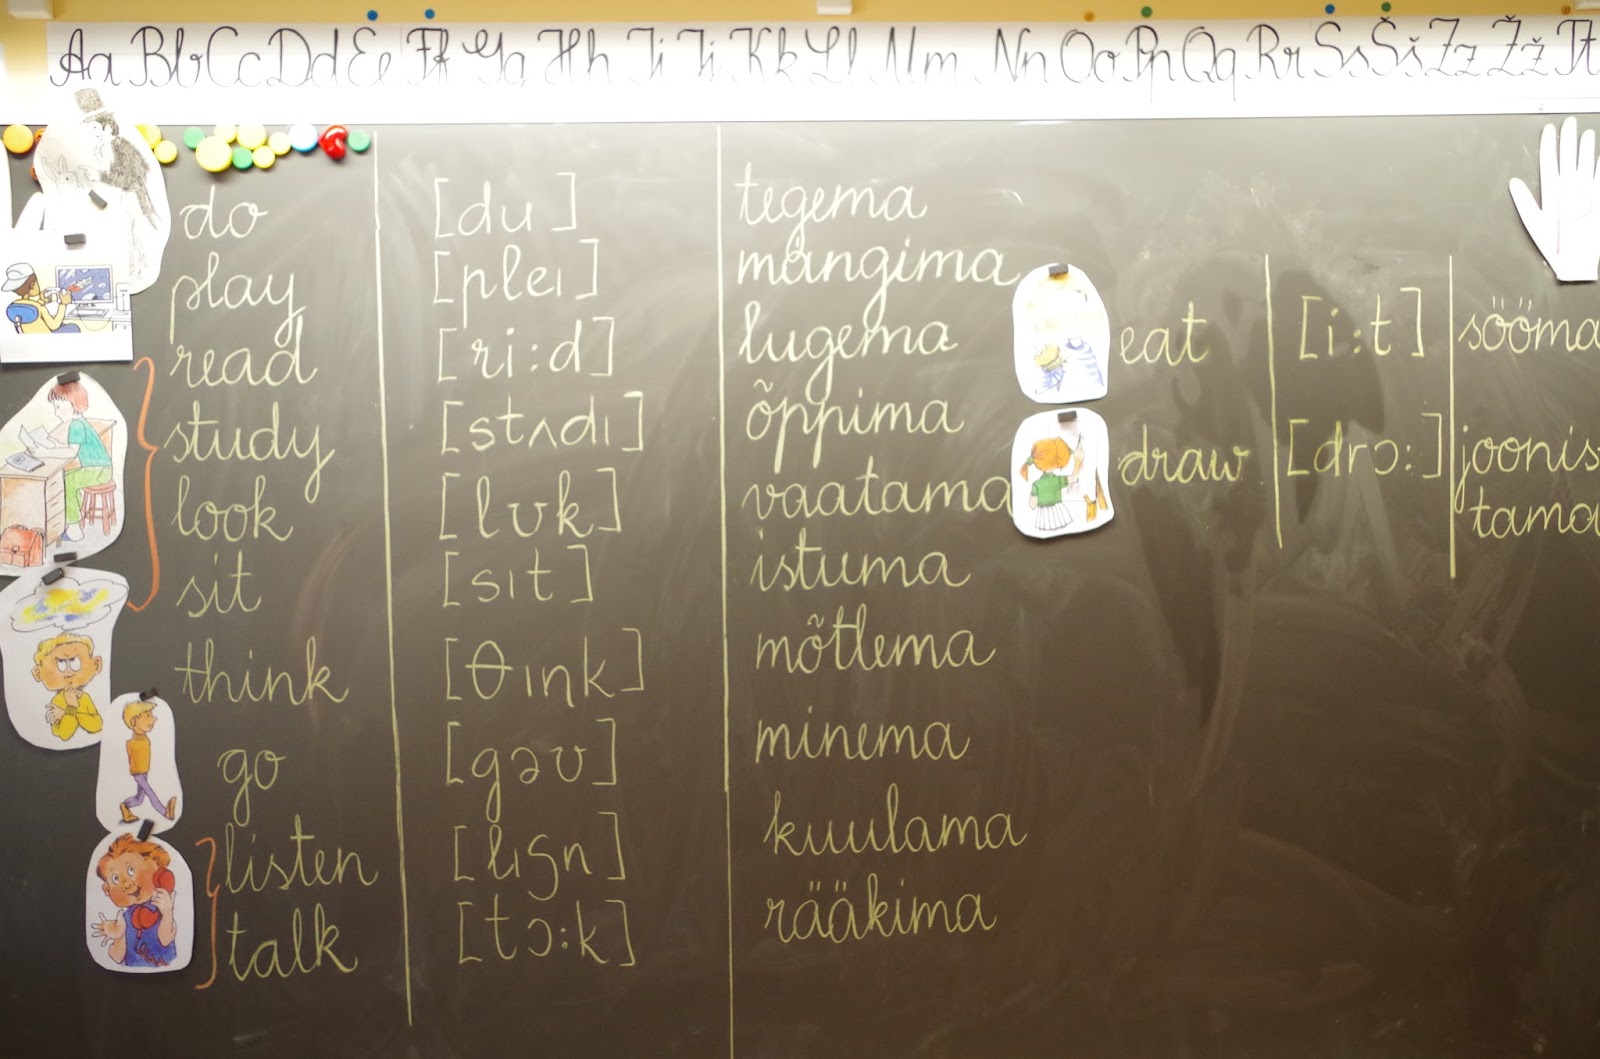 Aa Bb Cc Dd Ee Ff Gg Hh Ii Jj Kk Ll Mm Nn Oo Pp Qq Rr Ss Šš Zz Žž Tt
do [du] tegema
play [pleı] mängima
read [ri:d] lugema
study [stʌdı] õppima
look [lʊk] vaatama
sit [sıt] istuma
think [θıŋk] mõtlema
go [gəʊ] minema
listen [lısn] kuulama
talk [tɔ:k] rääkima
eat [i:t] sööma
draw [drɔ:] joonis
tama